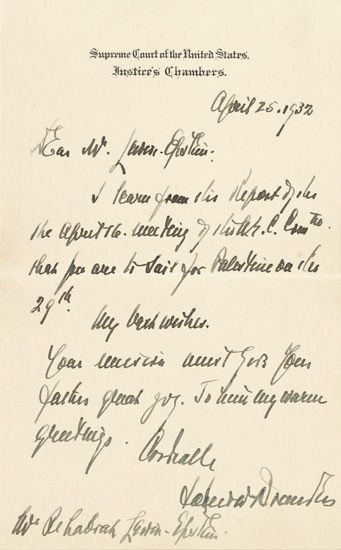 Supreme Court of the United States.
Justice's Chambers.
April 25, 1932
Dear Mr. Lewin-Epstein:
I learn from the Report of the
the April 16. meeting of the C. Com
that you are to sail for Palestine on the
29th.
My best wishes.
Your mission must give your
father great joy. To him my warm
greetings.
Cordially
Louis D Brandeis
Mr Rehabiah Lewin-Epstein.